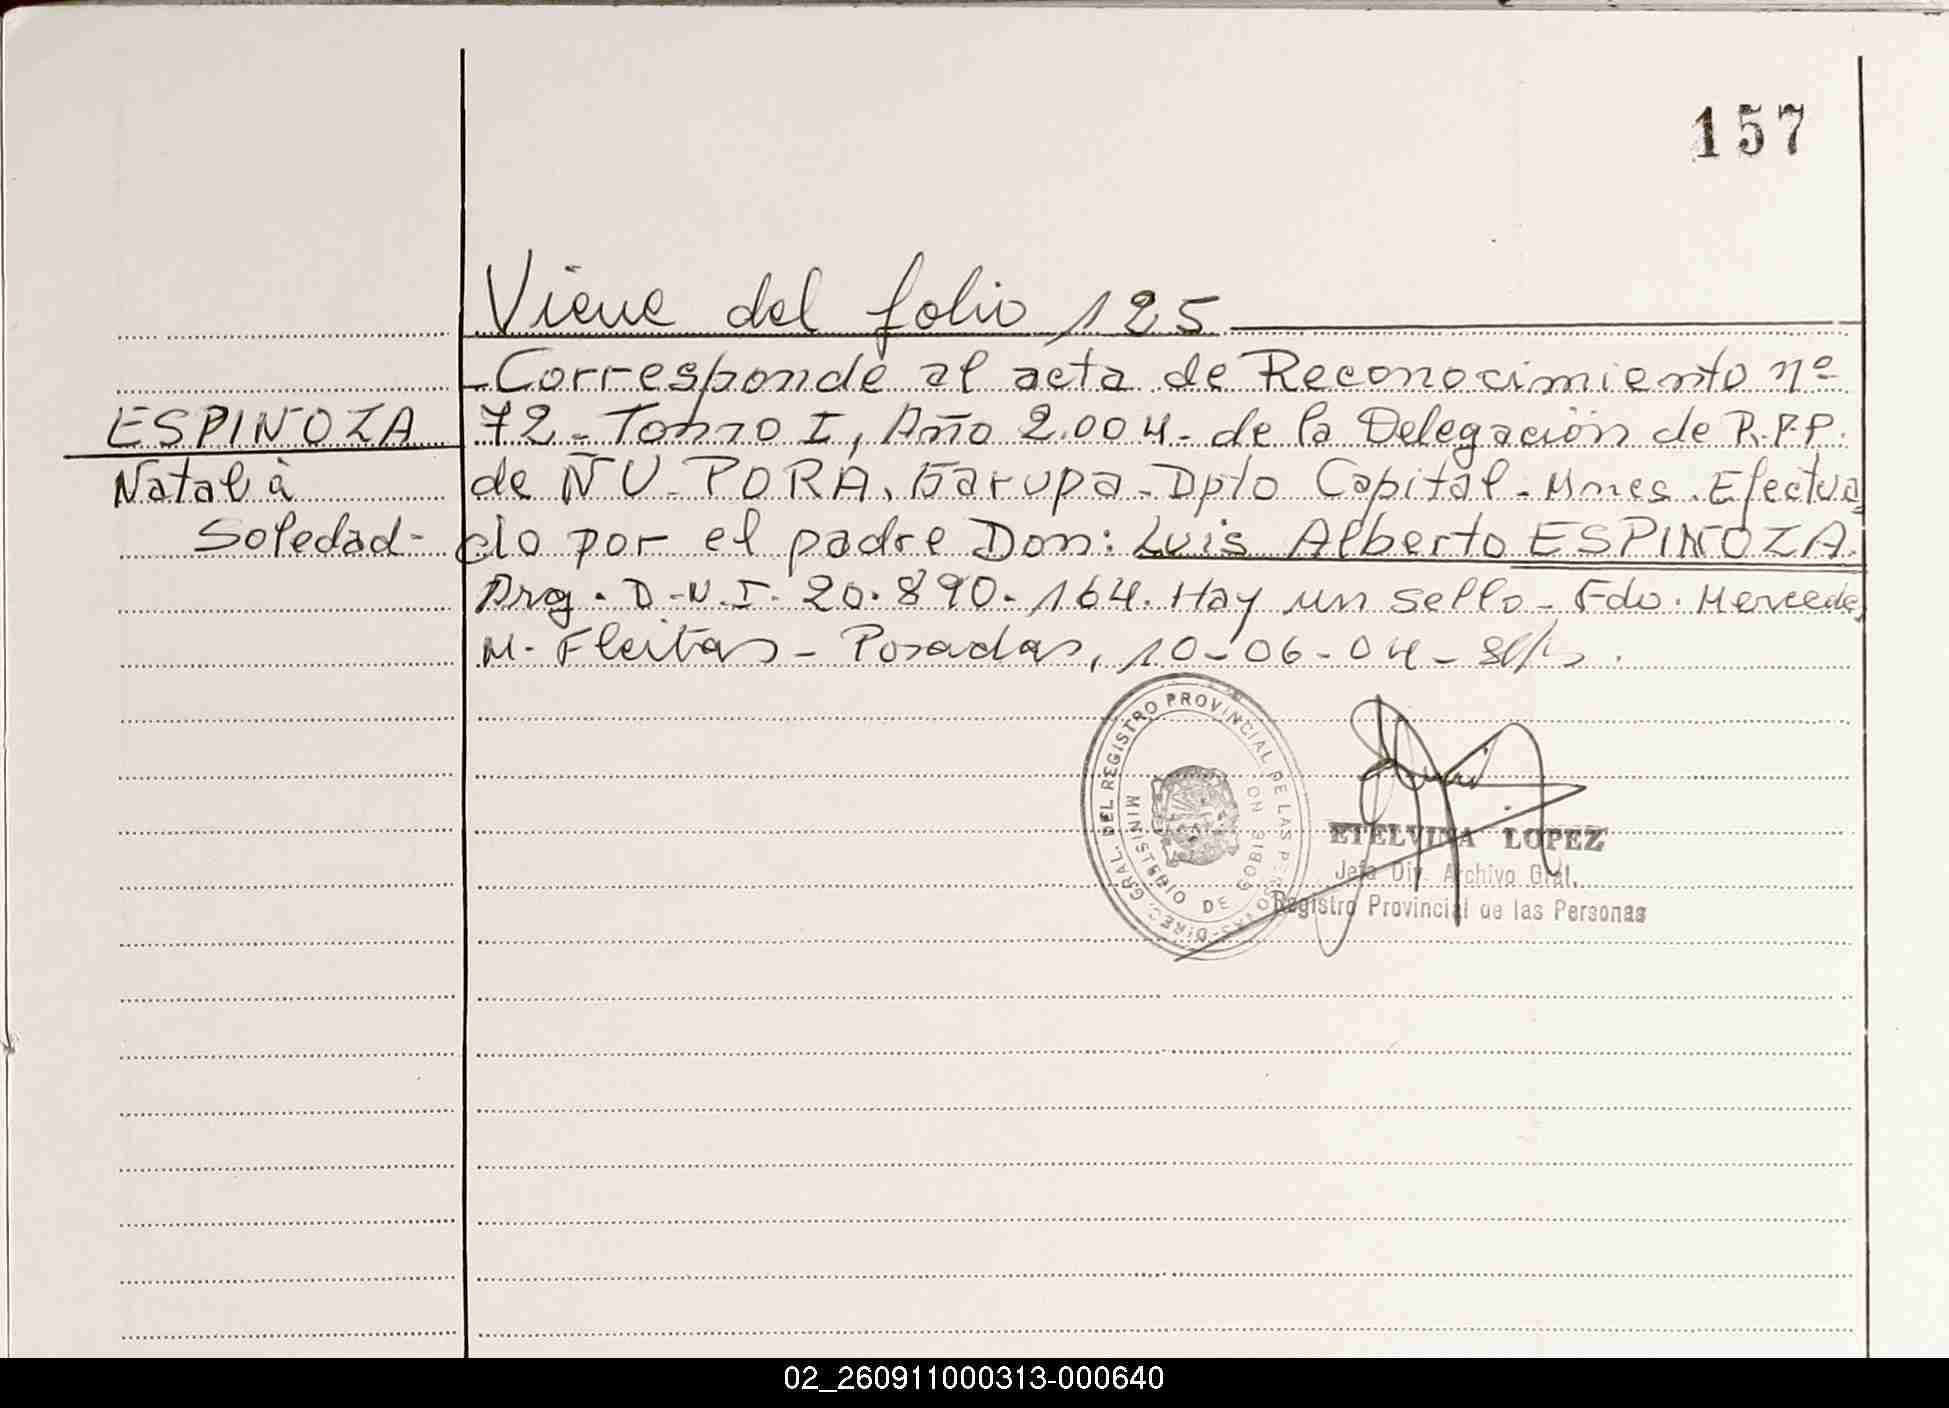 157
Viene del folio 125
Corresponde al acta de Reconocimiento nº
ESPINOZA 72 - Tomo I, Año 2.004 - de la Delegación de R.P.P.
Natalia de ÑU - PORA, Garupa - Dpto Capital - Mnes. Efectua
Soledad - do por el padre Don: Luis Alberto ESPINOZA.
Arg. D.N.I. 20.890.164. Hay un sello - Fdo. Mercedes
M. Fleitas - Posadas, 10-06-04 -
DIREC. GRAL. DEL REGISTRO PROVINCIAL DE LAS PERSONAS
MINISTERIO DE GOBIERNO
ETELVINA LOPEZ
Jefa Div. Archivo Gral.
Registro Provincial de las Personas
02_260911000313-000640